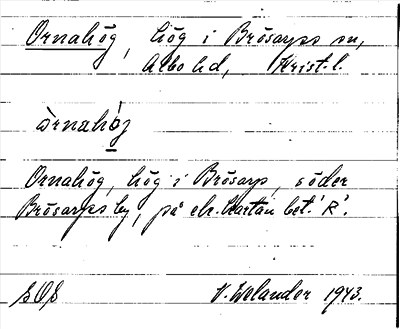 Ornahög, hög i Brösarps sn,
Albo hd, Krist. l.
ò̀rnahó̱g
Ornahög, hög i Brösarp, söder
Brösarps by, på ek. kartan bet. 'R'.
SOS V. Welander 1943.